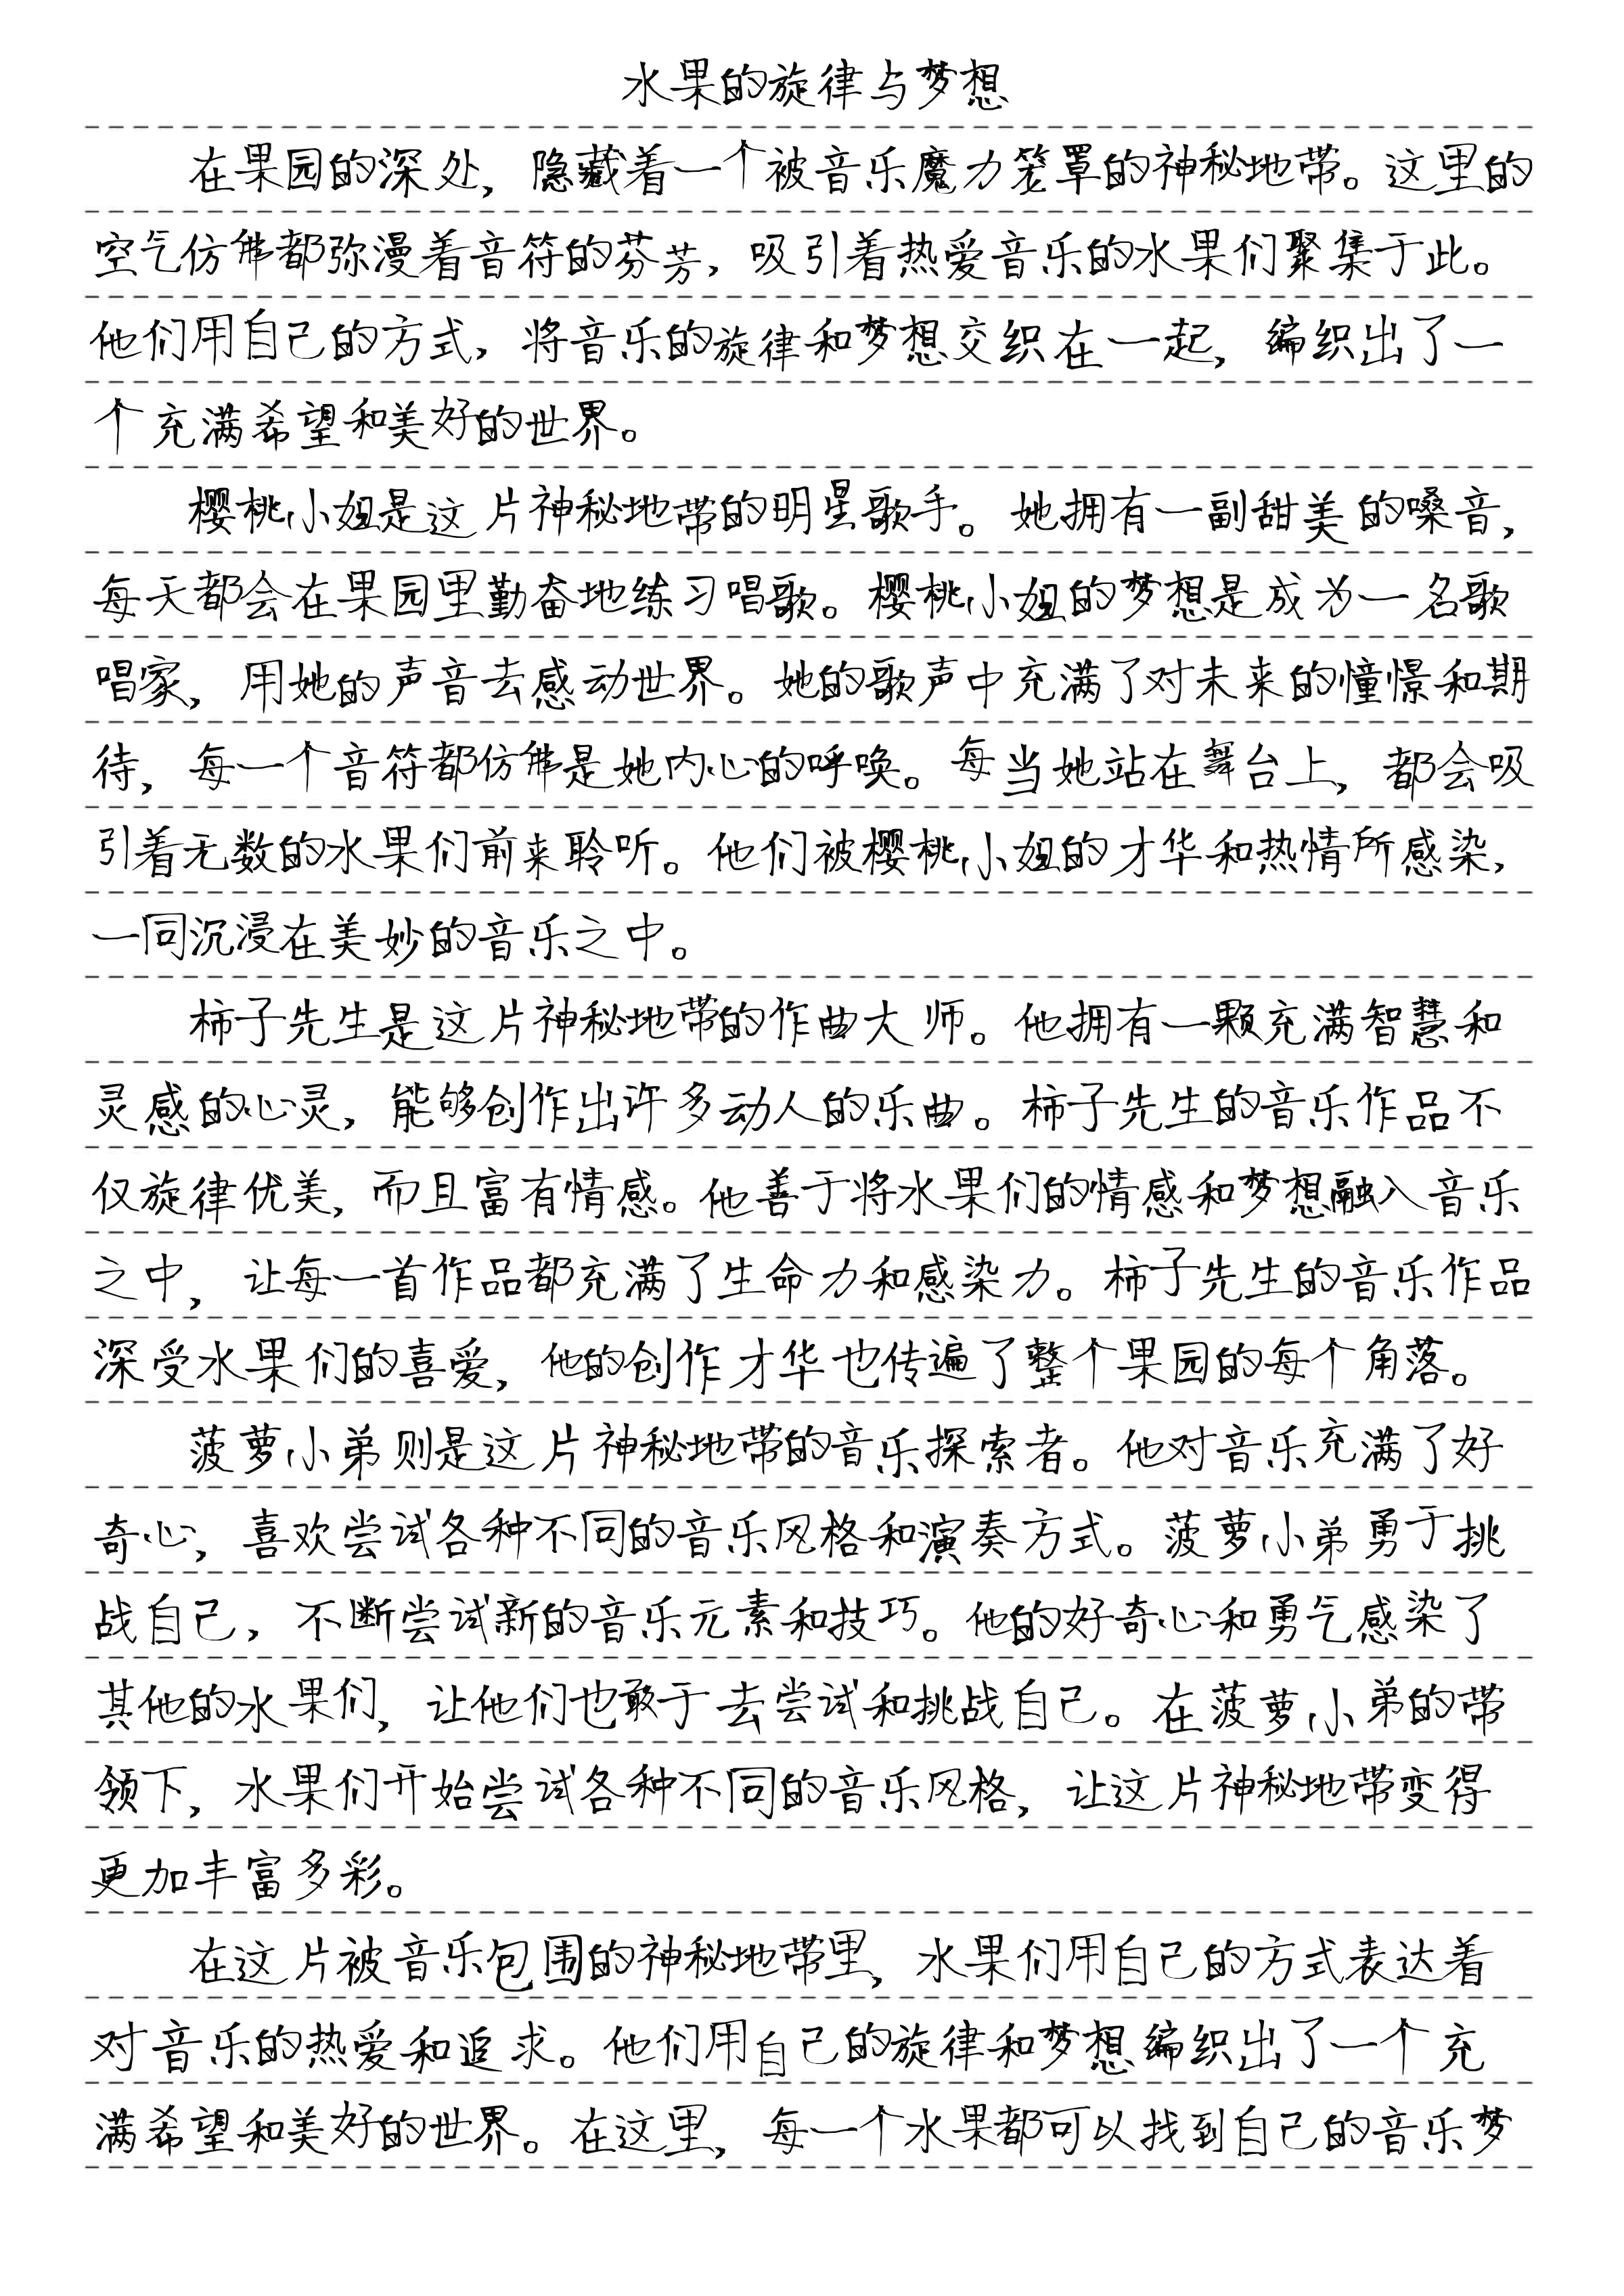 水果的旋律与梦想
在果园的深处，隐藏着一个被音乐魔力笼罩的神秘地带。这里的
空气仿佛都弥漫着音符的芬芳，吸引着热爱音乐的水果们聚集于此。
他们用自己的方式，将音乐的旋律和梦想交织在一起，编织出了一
个充满希望和美好的世界。
樱桃小姐是这片神秘地带的明星歌手。她拥有一副甜美的嗓音，
每天都会在果园里勤奋地练习唱歌。樱桃小姐的梦想是成为一名歌
唱家，用她的声音去感动世界。她的歌声中充满了对未来的憧憬和期
待，每一个音符都仿佛是她内心的呼唤。每当她站在舞台上，都会吸
引着无数的水果们前来聆听。他们被樱桃小姐的才华和热情所感染，
一同沉浸在美妙的音乐之中。
柿子先生是这片神秘地带的作曲大师。他拥有一颗充满智慧和
灵感的心灵，能够创作出许多动人的乐曲。柿子先生的音乐作品不
仅旋律优美，而且富有情感。他善于将水果们的情感和梦想融入音乐
之中，让每一首作品都充满了生命力和感染力。柿子先生的音乐作品
深受水果们的喜爱，他的创作才华也传遍了整个果园的每个角落。
菠萝小弟则是这片神秘地带的音乐探索者。他对音乐充满了好
奇心，喜欢尝试各种不同的音乐风格和演奏方式。菠萝小弟勇于挑
战自己，不断尝试新的音乐元素和技巧。他的好奇心和勇气感染了
其他的水果们，让他们也敢于去尝试和挑战自己。在菠萝小弟的带
领下，水果们开始尝试各种不同的音乐风格，让这片神秘地带变得
更加丰富多彩。
在这片被音乐包围的神秘地带里，水果们用自己的方式表达着
对音乐的热爱和追求。他们用自己的旋律和梦想编织出了一个充
满希望和美好的世界。在这里，每一个水果都可以找到自己的音乐梦